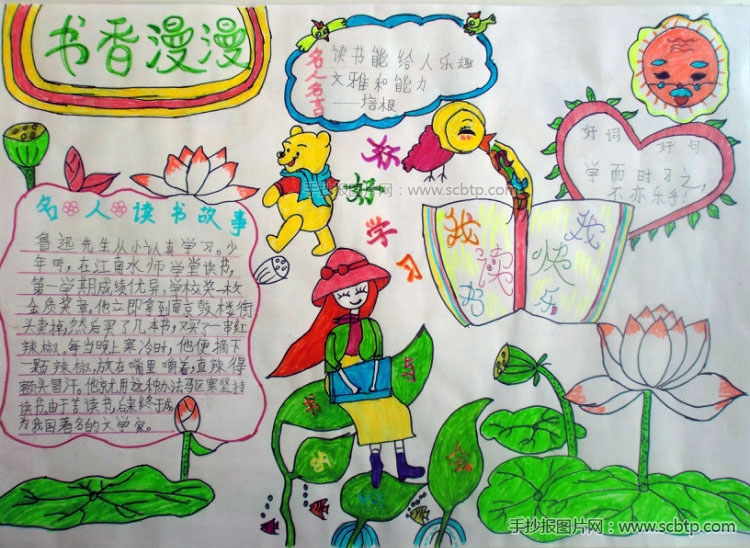 书香漫漫
名人名言
读书能给人乐趣
文雅和能力
——培根
好词 好句
学而时习之,
不亦乐乎!
手抄报图片网:www.scbtp.com
好学习
我读书
我快乐
名人读书故事
鲁迅先生从小认真学习。少
年时,在江南水师学堂读书,
第一学期成绩优异,学校奖一枚
金质奖章。他立即拿到南京鼓楼街
头卖掉,然后买了几本书,又买了一串红
辣椒。每当晚上寒冷时,他便摘下
一颗辣椒,放在嘴里嚼着,直辣得
额头冒汗。他就用这种办法驱寒坚持
读书。由于苦读书,后来终于成
为我国著名的文学家。
书 与
手抄报图片网:www.scbtp.com